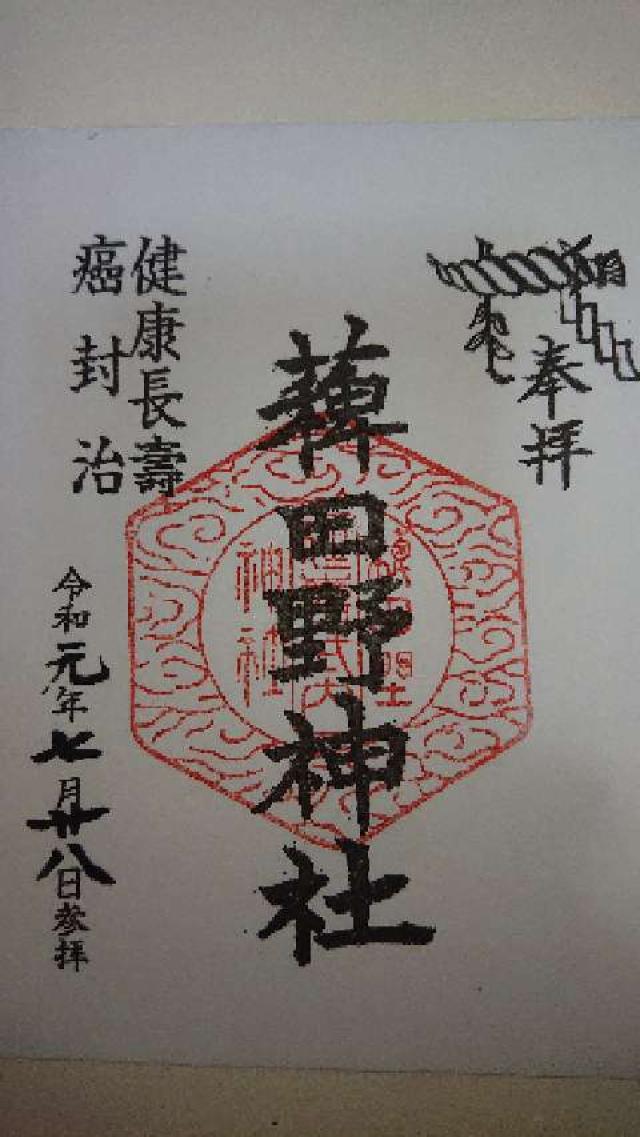 奉拝
薭田野神社
健康長壽
癌封治
令和元年七月廿八日参拝